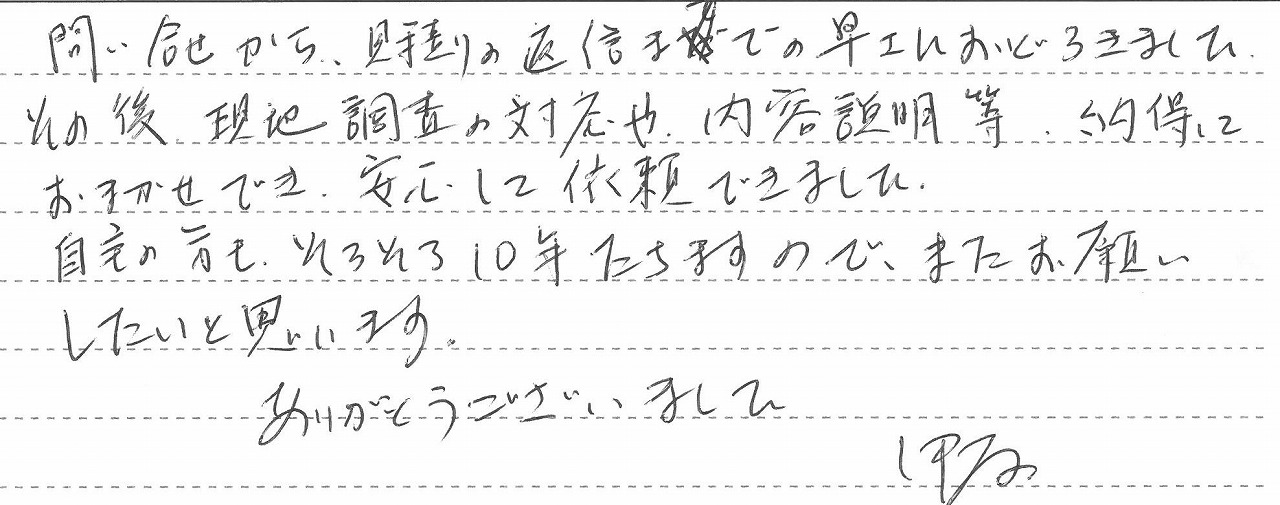 問い合せから、見積りの返信までの早さにおどろきました。
その後、現地調査の対応や、内容説明等、納得して
おまかせでき、安心して依頼できました。
自宅の方も、そろそろ10年たちますので、またお願い
したいと思います。
ありがとうございました